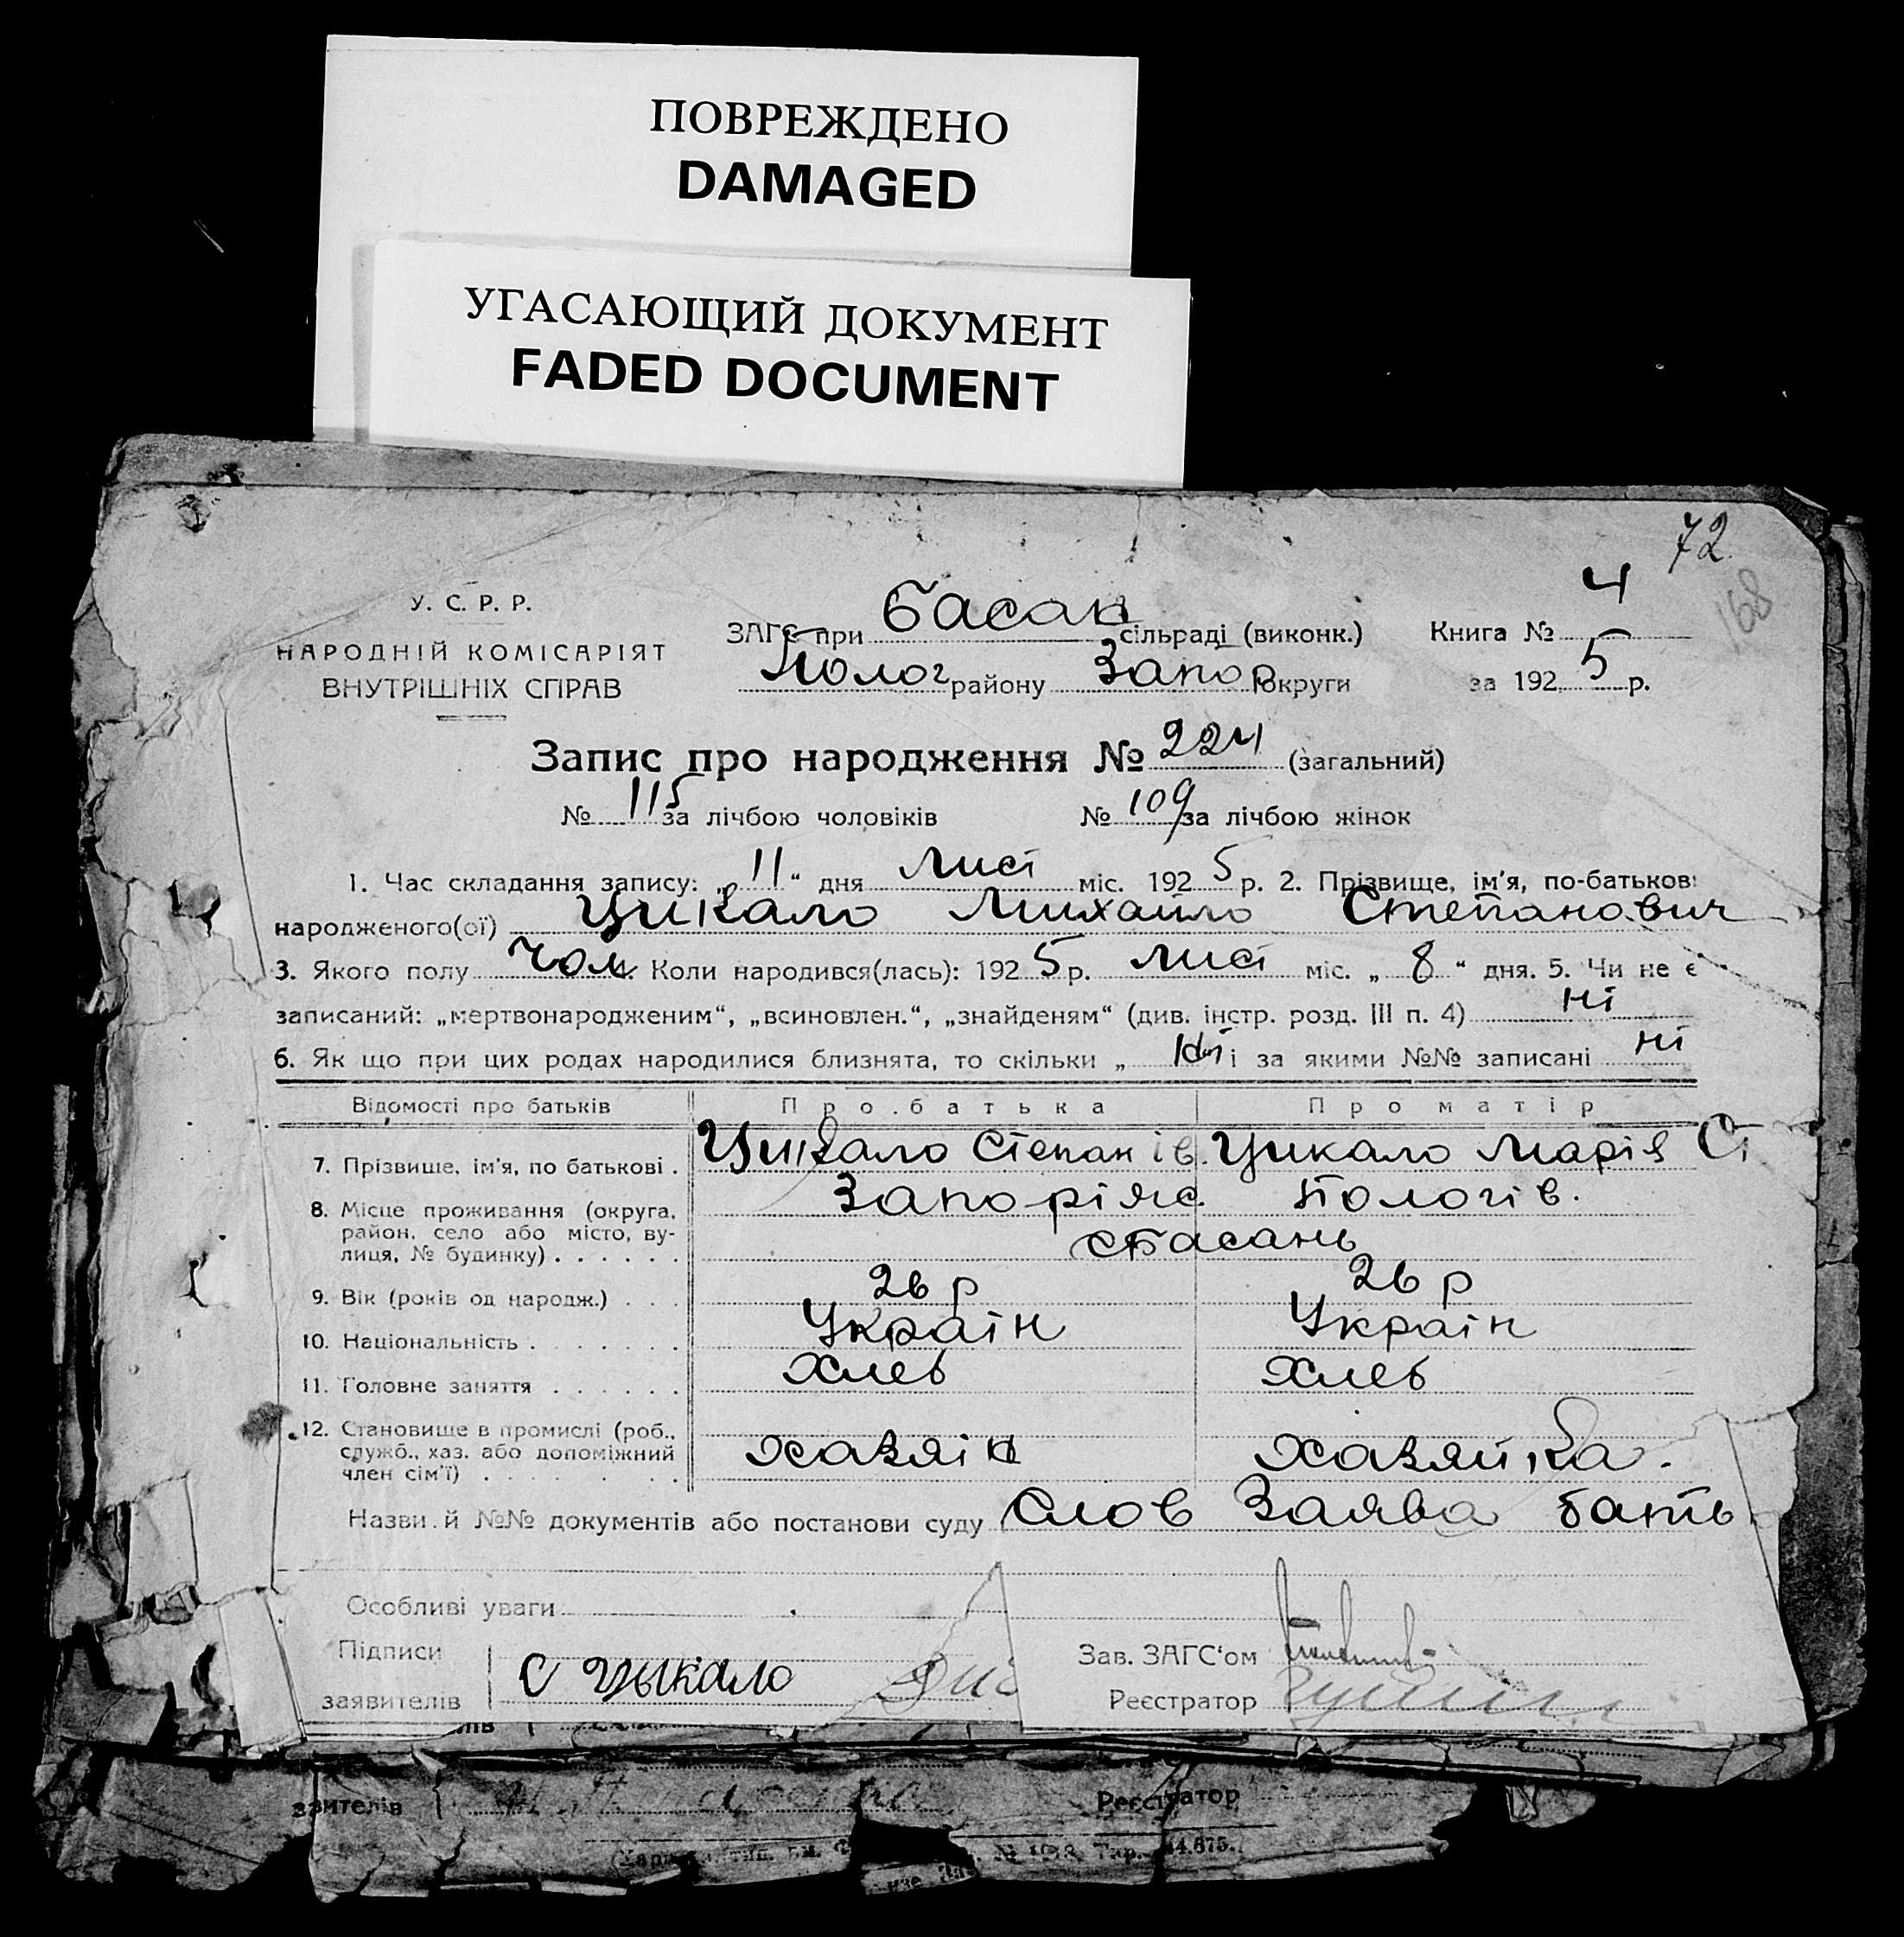 ПОВРЕЖДЕНО
DAMAGED
УГАСАЮЩИЙ ДОКУМЕНТ
FADED DOCUMENT
72
168
У. С. Р. Р.
НАРОДНІЙ КОМІСАРІЯТ
ВНУТРІШНІХ СПРАВ
ЗАГС при Басан сільраді (виконк.) Книга № 4
Полог району Запор округи за 1925 р.
Запис про народження № 224 (загальний)
№ 115 за лічбою чоловіків № 109 за лічбою жінок
1. Час складання запису: „11“ дня Лист міс. 1925 р. 2. Прізвище, ім'я, по-батькові
народженого(ої) Цикало Михайло Степанович
3. Якого полу Чол. Коли народився(лась): 1925 р. лист міс. „8“ дня. 5. Чи не є
записаний: „мертвонародженим“, „всиновлен.“, „знайденям“ (див. інстр. розд. III п. 4) ні
6. Як що при цих родах народилися близнята, то скільки „ і за якими №№ записані ні
Відомості про батьків Про батька Про матір
7. Прізвище, ім'я, по батькові . Цикало Степан ів. Цикало Марія Ст
8. Місце проживання (округа, Запоріж Пологів.
район, село або місто, ву-
лиця, № будинку) . . . . . . с Басань
9. Вік (років од народж.) . . . 26 р 26 р
10. Національність . . . . . . . Україн Україн
11. Головне заняття . . . . . . хлеб хлеб
12. Становище в промислі (роб.,
служб., хаз. або допоміжний хазяін хазяйка.
член сім'ї) . . . . . . . . .
Назви й №№ документів або постанови суду Слов Заява бать
Особливі уваги
Підписи Зав. ЗАГС'ом
заявителів С Цыкало Реєстратор
ів
заявителів Реєстратор
№ Тир. 44.675.